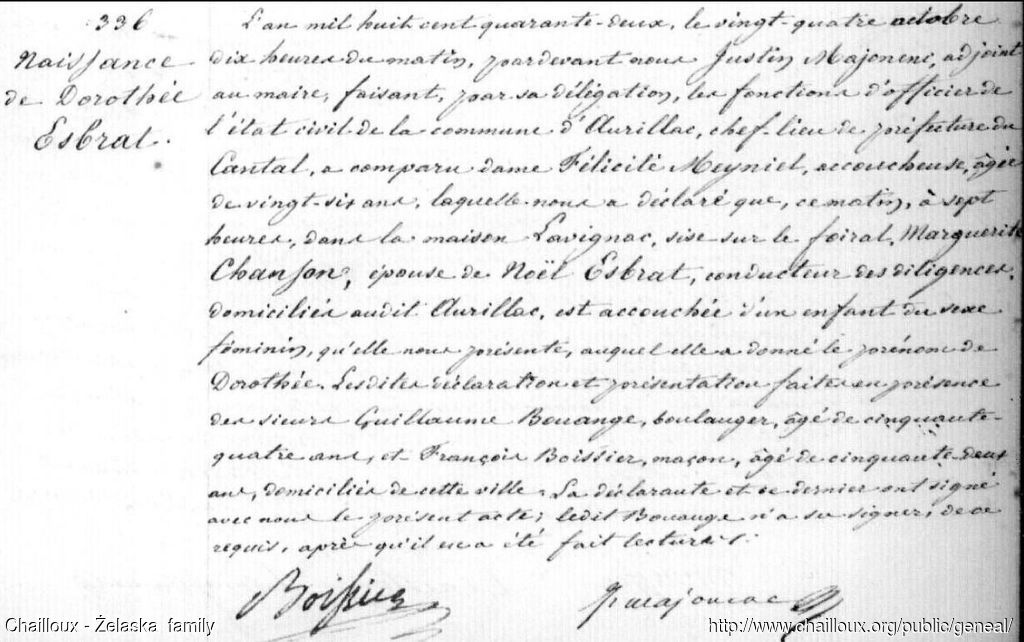 336
Naissance
de Dorothée
Esbrat.
L'an mil huit cent quarante-deux, le vingt-quatre octobre
dix heures du matin, pardevant nous Justin Majonenc, adjoint
au maire, faisant, par sa délégation, les fonctions d'officier de
l'état civil de la commune d'Aurillac, chef-lieu de préfecture du
Cantal, a comparu dame Félicité Meyniel, accoucheuse, âgée
de vingt-six ans, laquelle nous a déclaré que, ce matin, à sept
heures, dans la maison Lavignac, sise sur le foiral, Marguerite
Chanson, épouse de Noël Esbrat, conducteur des diligences,
domiciliés audit Aurillac, est accouchée d'un enfant du sexe
féminin, qu'elle nous présente, auquel elle a donné le prénom de
Dorothée. Lesdites déclaration et présentation faites en présence
des sieurs Guillaume Bouange, boulanger, âgé de cinquante-
quatre ans, et François Boissier, maçon, âgé de cinquante-deux
ans, domiciliés de cette ville. La déclarante et ce dernier ont signé
avec nous le présent acte; ledit Bouange n'a su signer, de ce
requis, après qu'il en a été fait lecture.
Boissier
Jn majonenc
Chailloux - Żelaska family
http://www.chailloux.org/public/geneal/